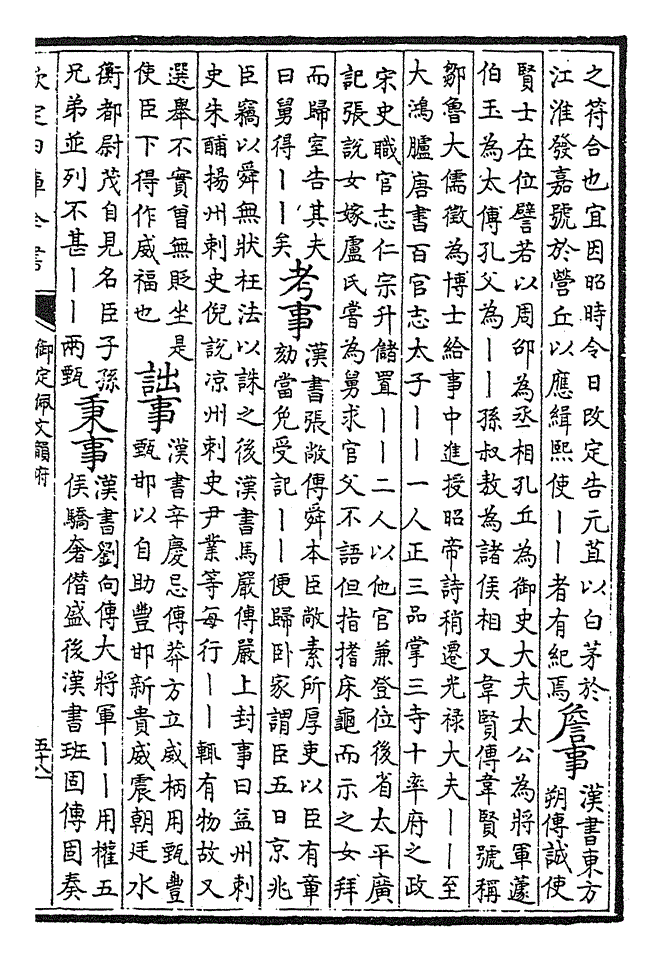 之符合也宜因昭時令日改定告元苴以白茅於
江淮發嘉號於營丘以應緝熙使丨丨者有紀焉
詹事
漢書東方
朔傳誠使
賢士在位譬若以周邵為丞相孔丘為御史大夫太公為將軍蘧
伯玉為太傅孔父為丨丨孫叔敖為諸侯相又韋賢傳韋賢號稱
鄒魯大儒徵為博士給事中進授昭帝詩稍遷光禄大夫丨丨至
大鴻臚唐書百官志太子丨丨一人正三品掌三寺十率府之政
宋史職官志仁宗升儲置丨丨二人以他官兼登位後省太平廣
記張說女嫁盧氏嘗為舅求官父不語但指搘床龜而示之女拜
而歸室告其夫
曰舅得丨丨矣
考事
漢書張敞傳舜本臣敞素所厚吏以臣有章
劾當免受記丨丨便歸卧家謂臣五日京兆
臣竊以舜無狀枉法以誅之後漢書馬嚴傳嚴上封事曰益州刺
史朱酺揚州刺史倪說凉州刺史尹業等每行丨丨輒有物故又
選舉不實曾無貶坐是
使臣下得作威福也
詘事
漢書辛慶忌傳莽方立威柄用甄豐
甄邯以自助豐邯新貴威震朝廷水
衡都尉茂自見名臣子孫
兄弟並列不甚丨丨兩甄
秉事
漢書劉向傳大將軍丨丨用權五
侯驕奢僭盛後漢書班固傳固奏
欽定四庫全書
御定佩文韻府
五十八